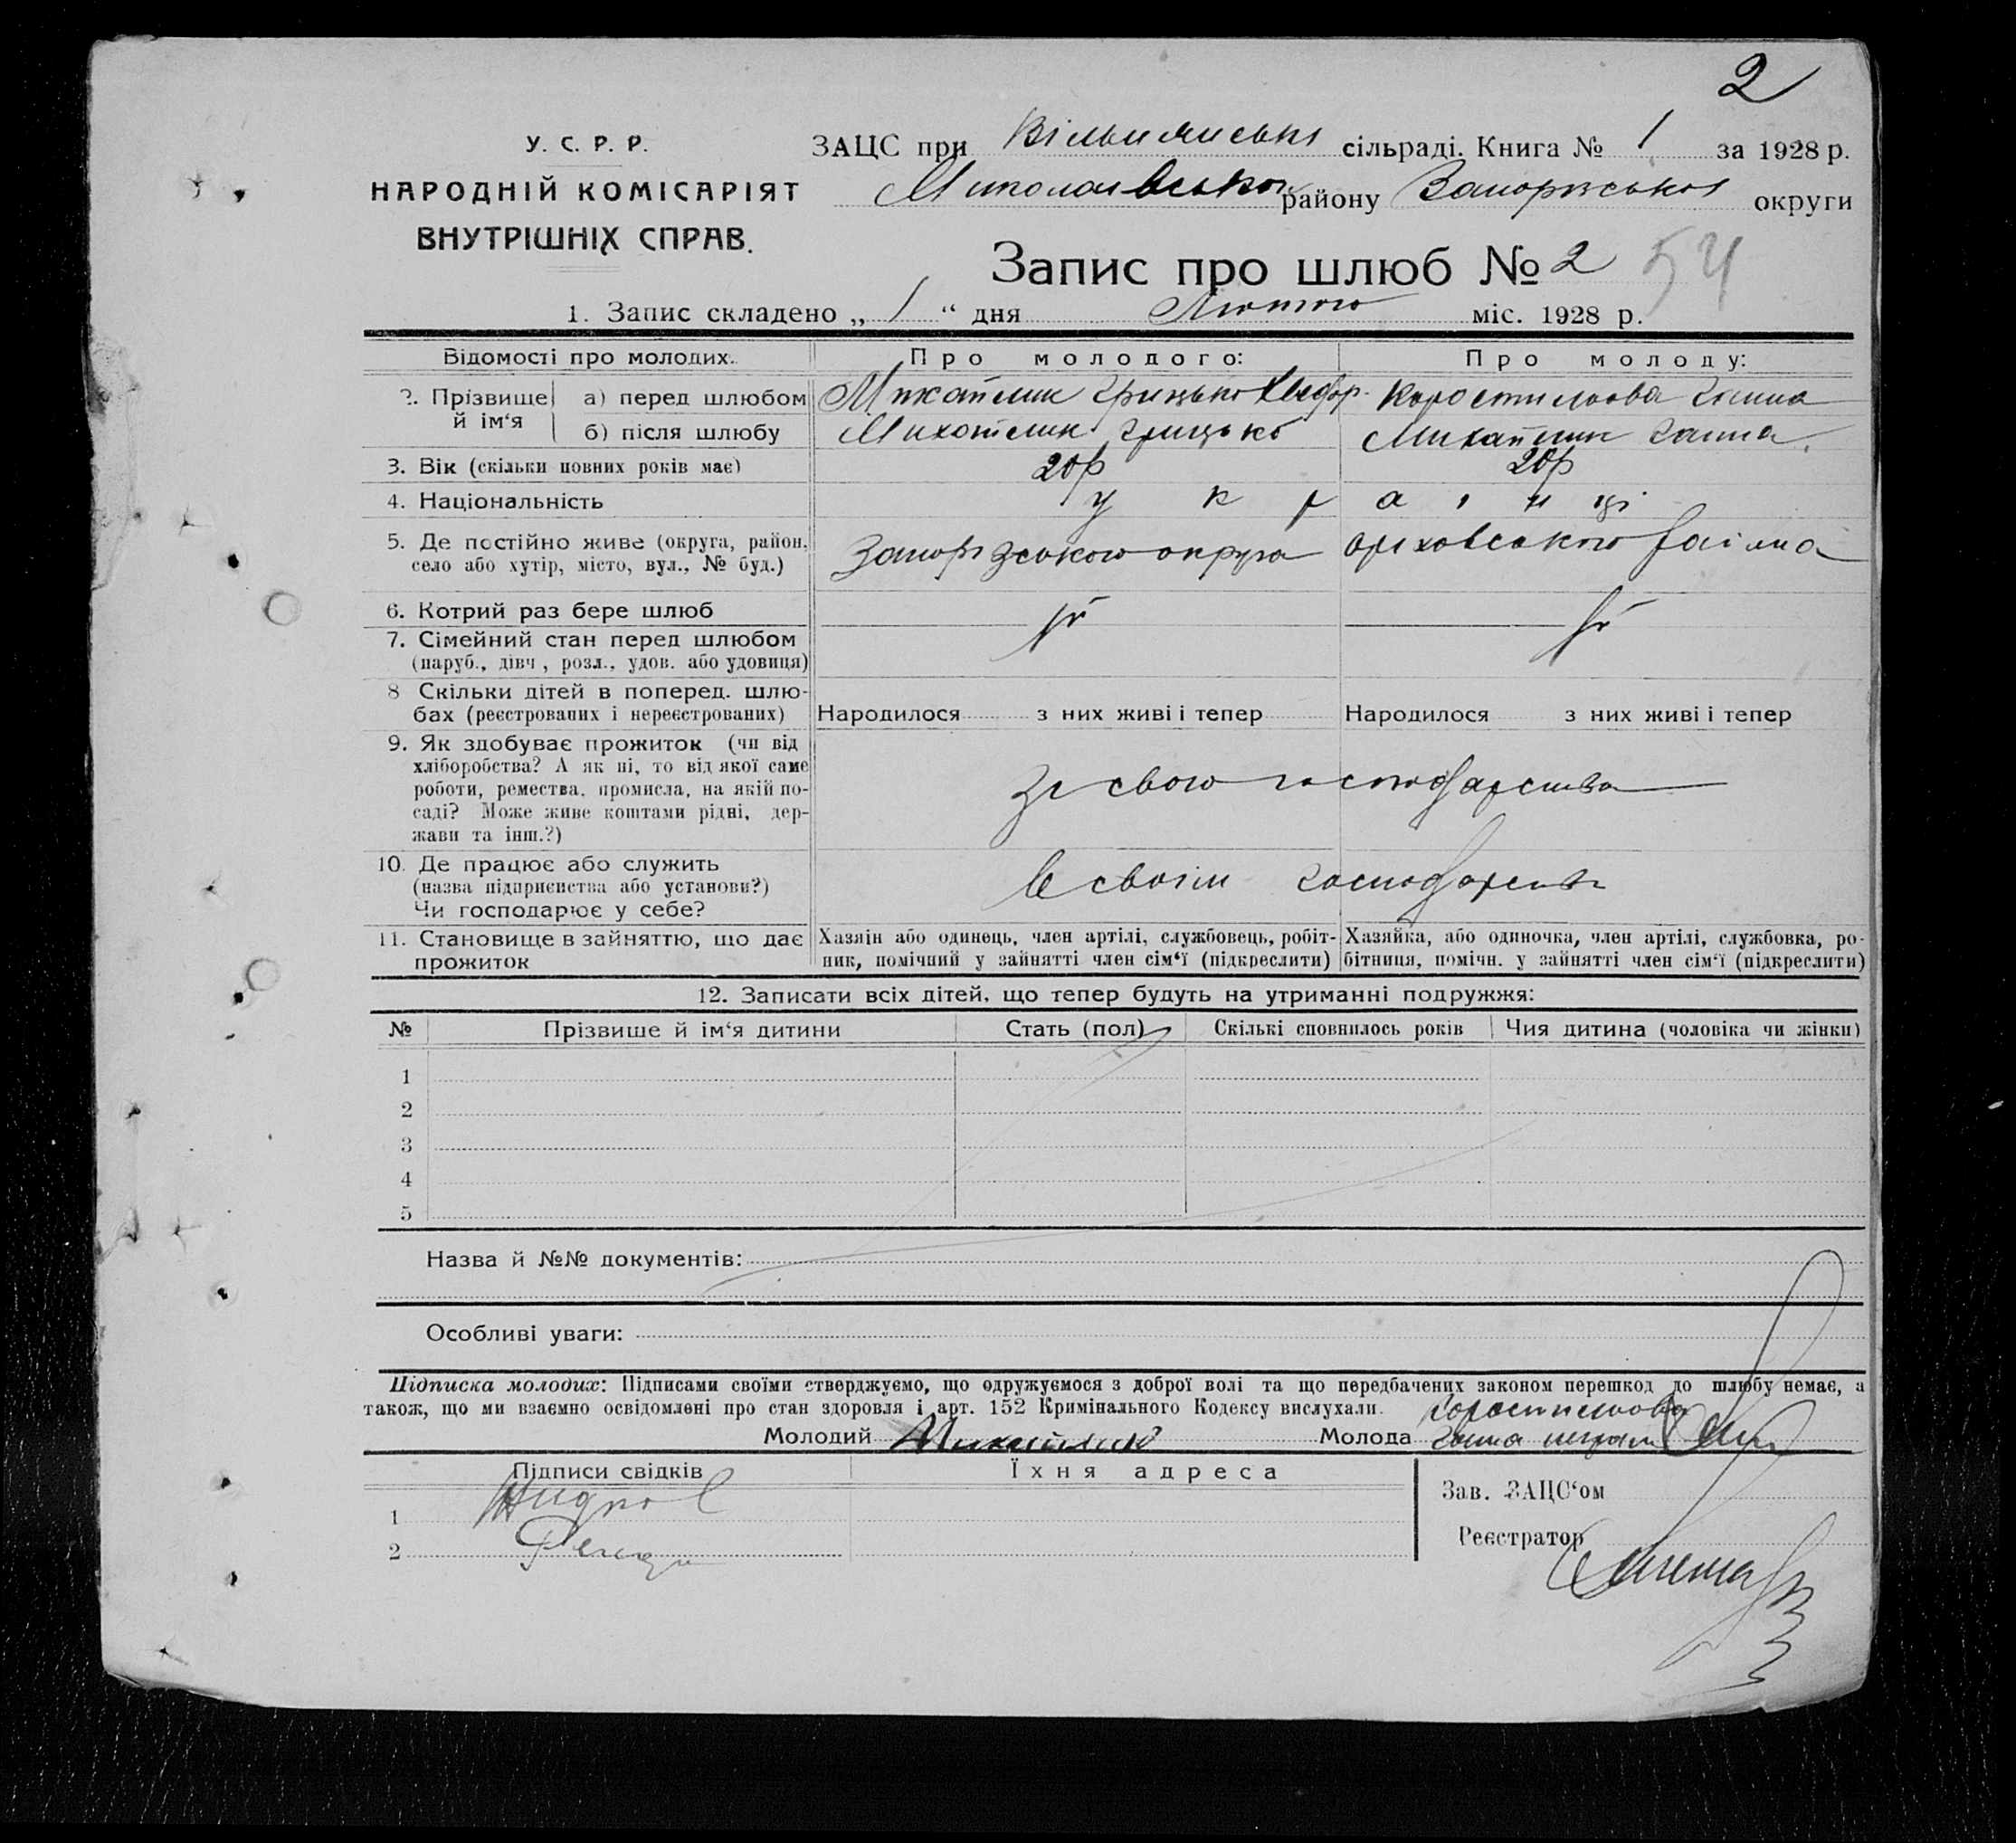 2
У. С. Р. Р.
НАРОДНІЙ КОМІСАРІЯТ
ВНУТРІШНІХ СПРАВ.
ЗАЦС при сільраді. Книга № 1 за 1928 р.
району округи
Запис про шлюб № 2 54
1. Запис складено „ 1 “ дня Лютого міс. 1928 р.
Відомості про молодих. Про молодого: Про молоду:
2. Прізвище й ім‘я
а) перед шлюбом Грицько Ганна
б) після шлюбу Грицько Ганна
3. Вік (скільки повних років має) 20р 20р
4. Національність українці
5. Де постійно живе (округа, район, село або хутір, місто, вул., № буд.) округа
6. Котрий раз бере шлюб
7. Сімейний стан перед шлюбом
(паруб., дівч., розл., удов. або удовиця)
8 Скільки дітей в поперед. шлю-
бах (реєстрованих і нереєстрованих) Народилося з них живі і тепер Народилося з них живі і тепер
9. Як здобуває прожиток (чи від
хліборобства? А як ні, то від якої саме
роботи, ремества, промисла, на якій по-
саді? Може живе коштами рідні, дер-
жави та інш.?)
зі свого господарства
10. Де працює або служить
(назва підприєнства або установи?)
Чи господарює у себе?
В своїм господарстві
11. Становище в зайняттю, що дає
прожиток
Хазяін або одинець, член артілі, службовець, робіт-
ник, помічний у зайнятті член сім‘ї (підкреслити)
Хазяйка, або одиночка, член артілі, службовка, ро-
бітниця, помічн. у зайнятті член сім‘ї (підкреслити)
12. Записати всіх дітей, що тепер будуть на утриманні подружжя:
№ Прізвише й ім‘я дитини Стать (пол) Скількі сповнилось років Чия дитина (чоловіка чи жінки)
1
2
3
4
5
Назва й №№ документів:
Особливі уваги:
Підписка молодих: Підписами своїми стверджуємо, що одружуємося з доброї волі та що передбачених законом перешкод до шлюбу немає, а
також, що ми взаємно освідомлені про стан здоровля і арт. 152 Кримінального Кодексу вислухали.
Молодий Молода
Підписи свідків Їхня адреса
Зав. ЗАЦС‘ом
1
Реєстратор
2